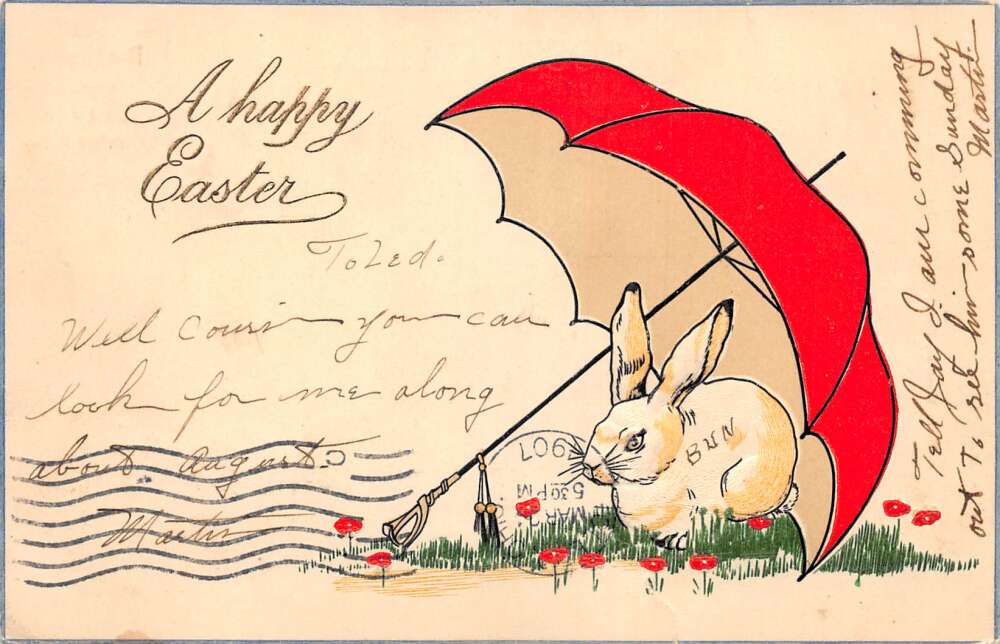 A happy
Easter
Toled.
Well cousin you can
look for me along
about August
Martin
BUN
1907
5 30 PM
MAR
Tell Jay I am comming
out to see him some Sunday
Martin